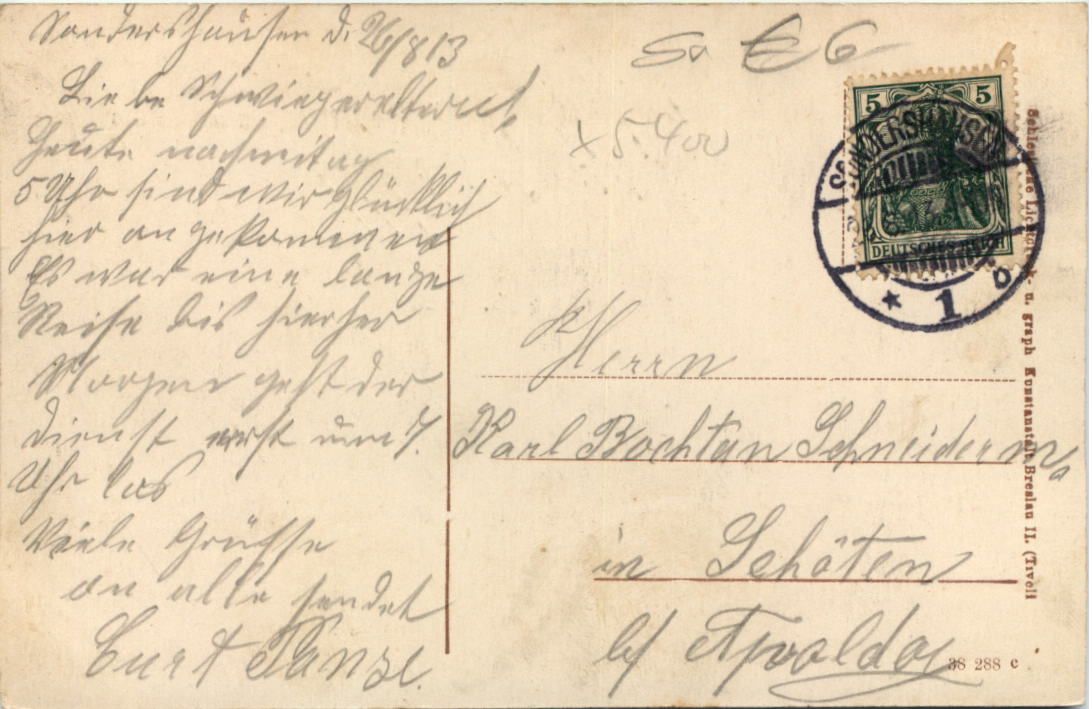 Sondershausen d. 26/8 13
Liebe Schwiegereltern!
Heute nachmitag
5 Uhr sind wir glücklich
hier angekommen
Es war eine lange
Reise bis hierher
Morgen geht der
Dienst erst um 7.
Uhr los
Viele Grüsse
an alle sendet
Curt
So € 6
x 5.400
5 5
DEUTSCHES REICH
SONDERSHAUSEN
* 1 b
Herrn
Karl Bochtan Schneiderm.
in Schöten
b/ Apolda
38 288 c
u. graph Kunstanstalt, Breslau II. (Tivoli